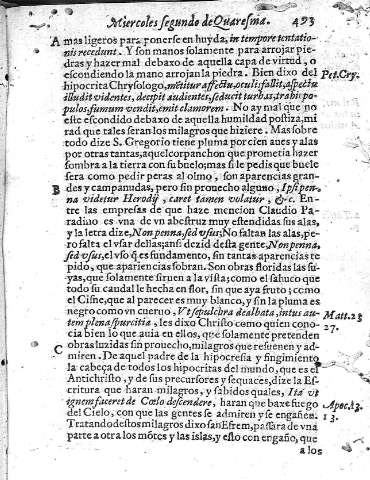 Miercoles segundo de Quaresma. 493
A mas ligeros para ponerse en huyda, in tempore tentatio-
nis recedunt. Y son manos solamente para arrojar pie-
dras y hazer mal debaxo de aquella capa de virtud, o
escondiendo la mano arrojan la piedra. Bien dixo del Pet. Cry.
hipocrita Chrysologo, metitur affectu, oculis fallit, aspectu
illudit videntes, decipit audientes, seducit turbas, trahit po-
pulos, fumum vendit, emit clamorem. No ay mal que no
este escondido debaxo de aquella humildad postiza, mi
rad que tales seran los milagros que hiziere. Mas sobre
todo dize S. Gregorio tiene pluma por cien aues y alas
por otras tantas, aquel corpanchon que prometia hazer
sombra a la tierra con su buelo; mas si le pedis que buele
sera como pedir peras al olmo, son aparencias gran-
B des y campanudas, pero sin prouecho alguno, Ipsi pen-
na videtur Herodij, caret tamen volatur, &c. En-
tre las empresas de que haze mencion Claudio Pa-
radino es vna de vn abestruz muy estendidas sus alas,
y la letra dize, Non penna, sed vsus; No faltan las alas, pe-
ro falta el vsar dellas; ansi dezid desta gente, Non penna,
sed vsus, el vso q̃ es fundamento, sin tantas aparencias te
pido, que apariencias sobran. Son obras floridas las su-
yas, que solamente siruen a la vista; como el sahuco que
todo su caudal le hecha en flor, sin que aya fruto; como
el Cisne, que al parecer es muy blanco, y sin la pluma es
negro como vn cueruo, Vt sepulchra dealbata, intus au- Matt. 23
tem plena spurcitia, les dixo Christo como quien cono- 27.
cia bien lo que auia en ellos, que solamente pretenden
obras luzidas sin prouecho, milagros que resuenen y ad-
C miren. De aquel padre de la hipocresia y fingimiento
la cabeça de todos los hipocritas del mundo, que es el
Antichristo, y de sus precursores y sequaces, dize la Es-
critura que haran milagros, y sabidos quales, Ita vt
ignem faceret de Cœlo descendere, haran que baxe fuego Apoc. 13.
del Cielo, con que las gentes se admiren y se engañen. 13.
Tratando destos milagros dixo san Efrem, passara de vna
parte a otra los mõtes y las islas, y esto con engaño, que
a los